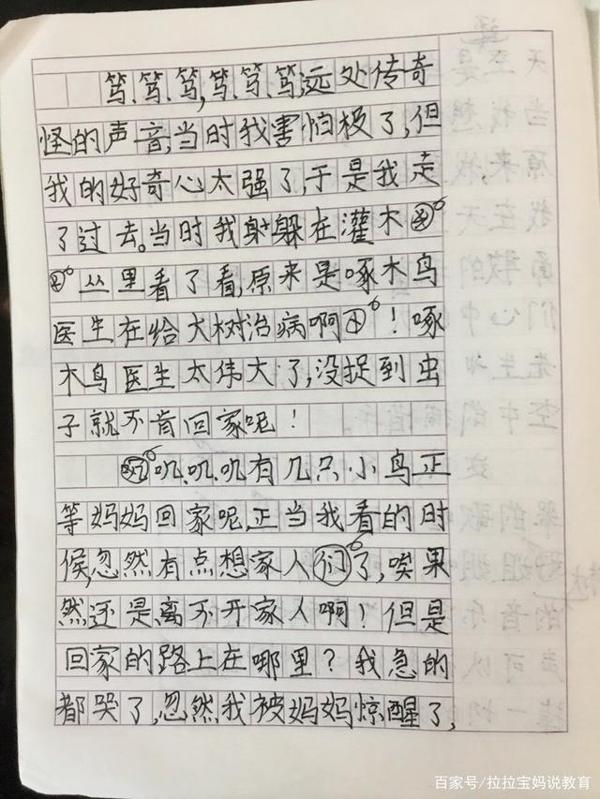 笃、笃、笃,笃、笃、笃,远处传奇
怪的声音,当时我害怕极了,但
我的好奇心太强了,于是我走
了过去。当时我躲在灌木
丛里看了看,原来是啄木鸟
医生在给大树治病啊!啄
木鸟医生太伟大了,没捉到虫
子就不肯回家呢!
叽、叽、叽有几只小鸟正
等妈妈回家呢,正当我看的时
候,忽然有点想家人们了,唉果
然还是离不开家人啊!但是
回家的路上在哪里?我急的
都哭了,忽然我被妈妈惊醒了,
百家号/拉拉宝妈说教育